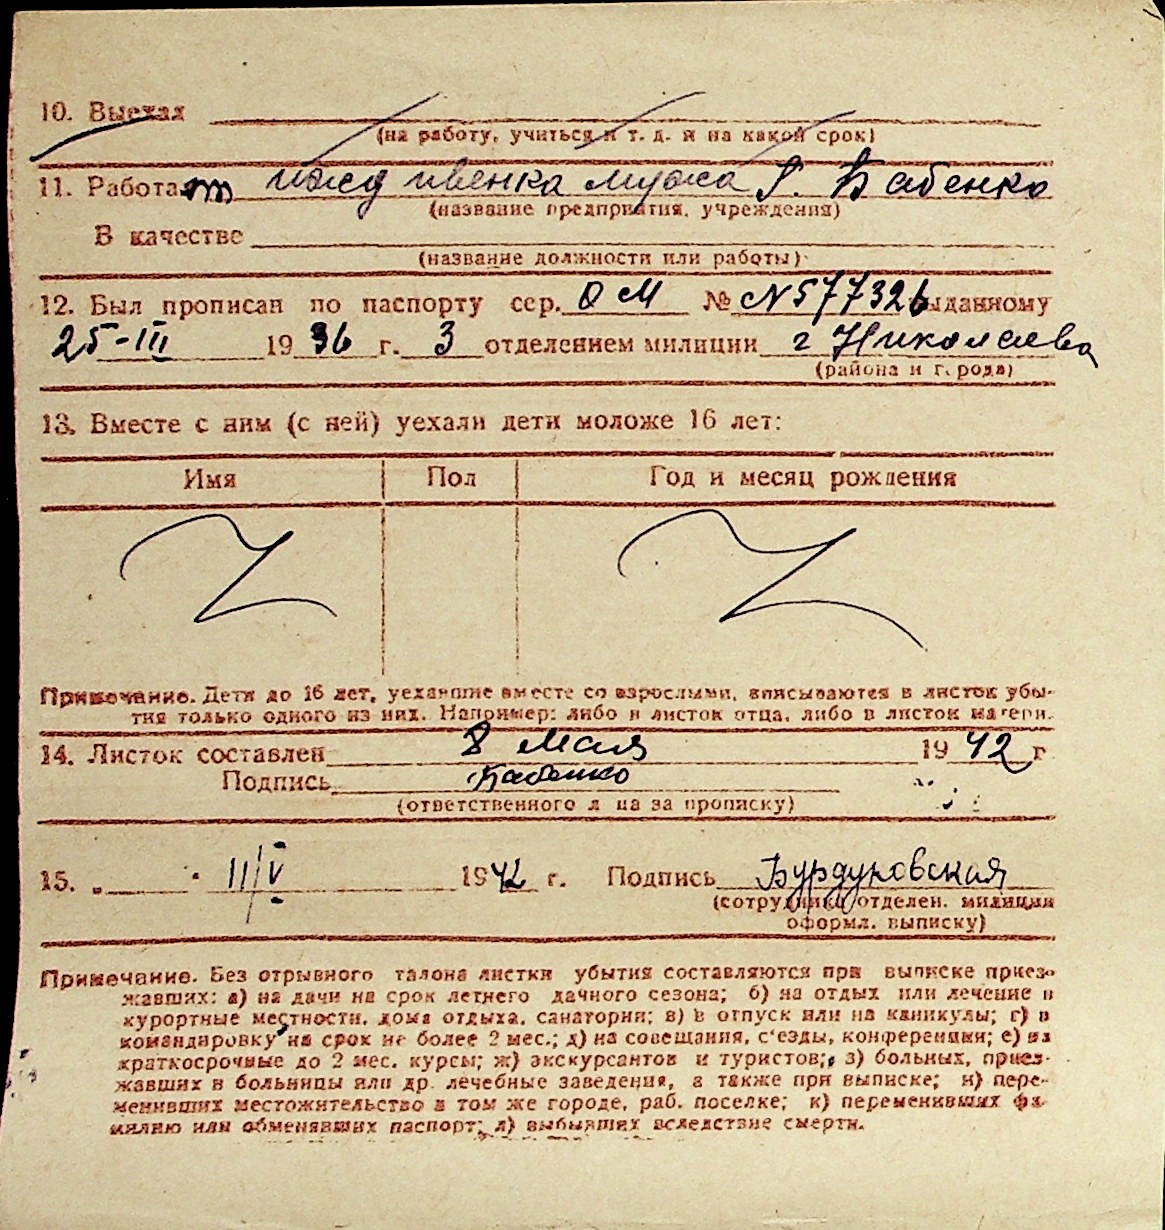 10. Выехал
(на работу, учиться и т. д. и на какой срок)
11. Работает иждивенка мужа Г. Бабенко
(название предприятия, учреждения)
В качестве
(название должности или работы)
12. Был прописан по паспорту сер. ОМ № N577326 выданному
25-III 1936 г. 3 отделением милиции г Николаева
(района и города)
13. Вместе с ним (с ней) уехали дети моложе 16 лет:
Имя Пол Год и месяц рождения
Примечание. Дети до 16 лет, уехавшие вместе со взрослыми, вписываются в листок убы-
тия только одного из них. Например: либо в листок отца, либо в листок матери.
14. Листок составлен 8 мая 1942 г
Подпись Бабенко
(ответственного лица за прописку)
15. „ " 11/V 1942 г. Подпись Бурдуковская
(сотрудника отделен. милиции
оформл. выписку)
Примечание. Без отрывного талона листки убытия составляются при выписке приез-
жавших: а) на дачи на срок летнего дачного сезона; б) на отдых или лечение в
курортные местности, дома отдыха, санатории; в) в отпуск или на каникулы; г) в
командировку на срок не более 2 мес.; д) на совещания, с'езды, конференции; е) на
краткосрочные до 2 мес. курсы; ж) экскурсантов и туристов; з) больных, приез-
жавших в больницы или др. лечебные заведения, а также при выписке; и) пере-
менивших местожительство в том же городе, раб. поселке; к) переменивших фа-
милию или обменявших паспорт; л) выбывших вследствие смерти.